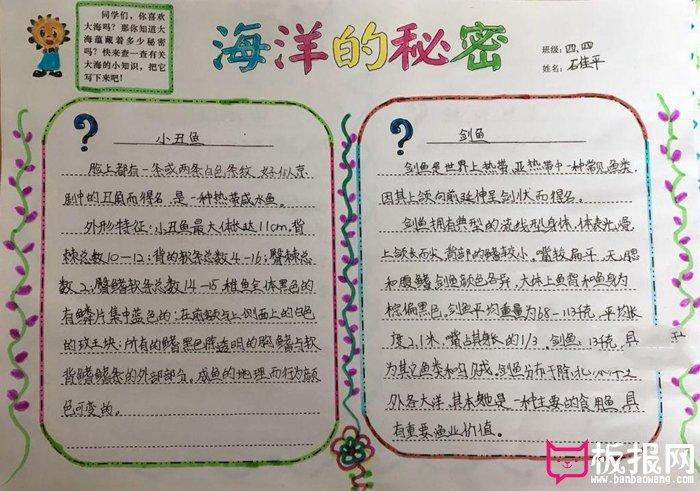 同学们，你喜欢
大海吗？那你知道大
海蕴藏着多少秘密
吗？快来查一查有关
大海的小知识，把它
写下来吧！
海洋的秘密
班级：四.四
姓名：石佳平
？ 小丑鱼
脸上都有一条或两条白色条纹，好似京
剧中的丑角而得名，是一种热带咸水鱼。
外形特征：小丑鱼最大体长达11cm，背
棘总数10—12；背的软条总数4-16；臀棘总
数2；臀鳍软条总数14-15 稚鱼全体黑色的
有鳞片集中蓝色的：在前额与上侧面上的白色
的玫王块；所有的鳍黑色除透明的胸鳍与软
背鳍鳍条的外部部分。成鱼的地理而行为颜
色可变的。
？ 剑鱼
剑鱼是世界上热带、亚热带中一种常见鱼类，
因其上颌向前延伸呈剑状而得名。
剑鱼拥有典型的流线型身体，体表光滑
上颌长而尖，背部的鳍较小。嘴较扁平，无腮
和腹鳍 剑鱼颜色各异，大体上鱼背和鱼身为
棕偏黑色。剑鱼平均重量为68-113千克，平均长
度2.1米，嘴占其身长的1/3。剑鱼，13千克，具
为其它鱼类和乌贼。剑鱼分布于除北
外各大洋，其本她是一种主要的食用鱼，具
有重要渔业价值。
板报网
www.banbaowang.com